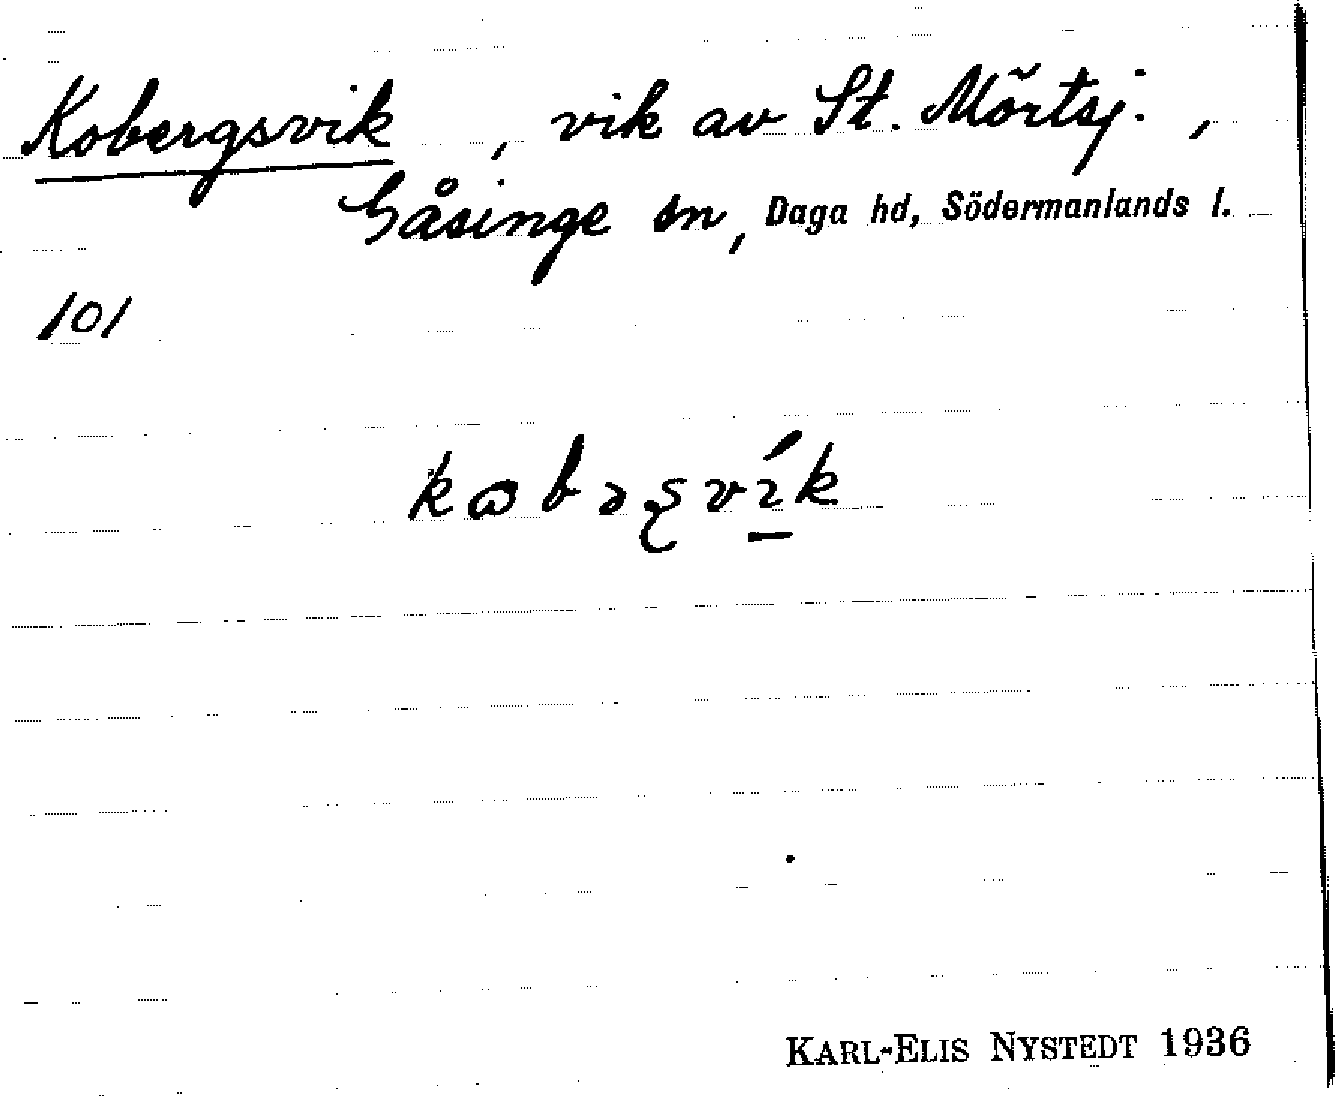 Kobergsvik, vik av St. Mörtsj.,
Gåsinge sn, Daga hd, Södermanlands l.
101
KARL-ELIS NYSTEDT 1936